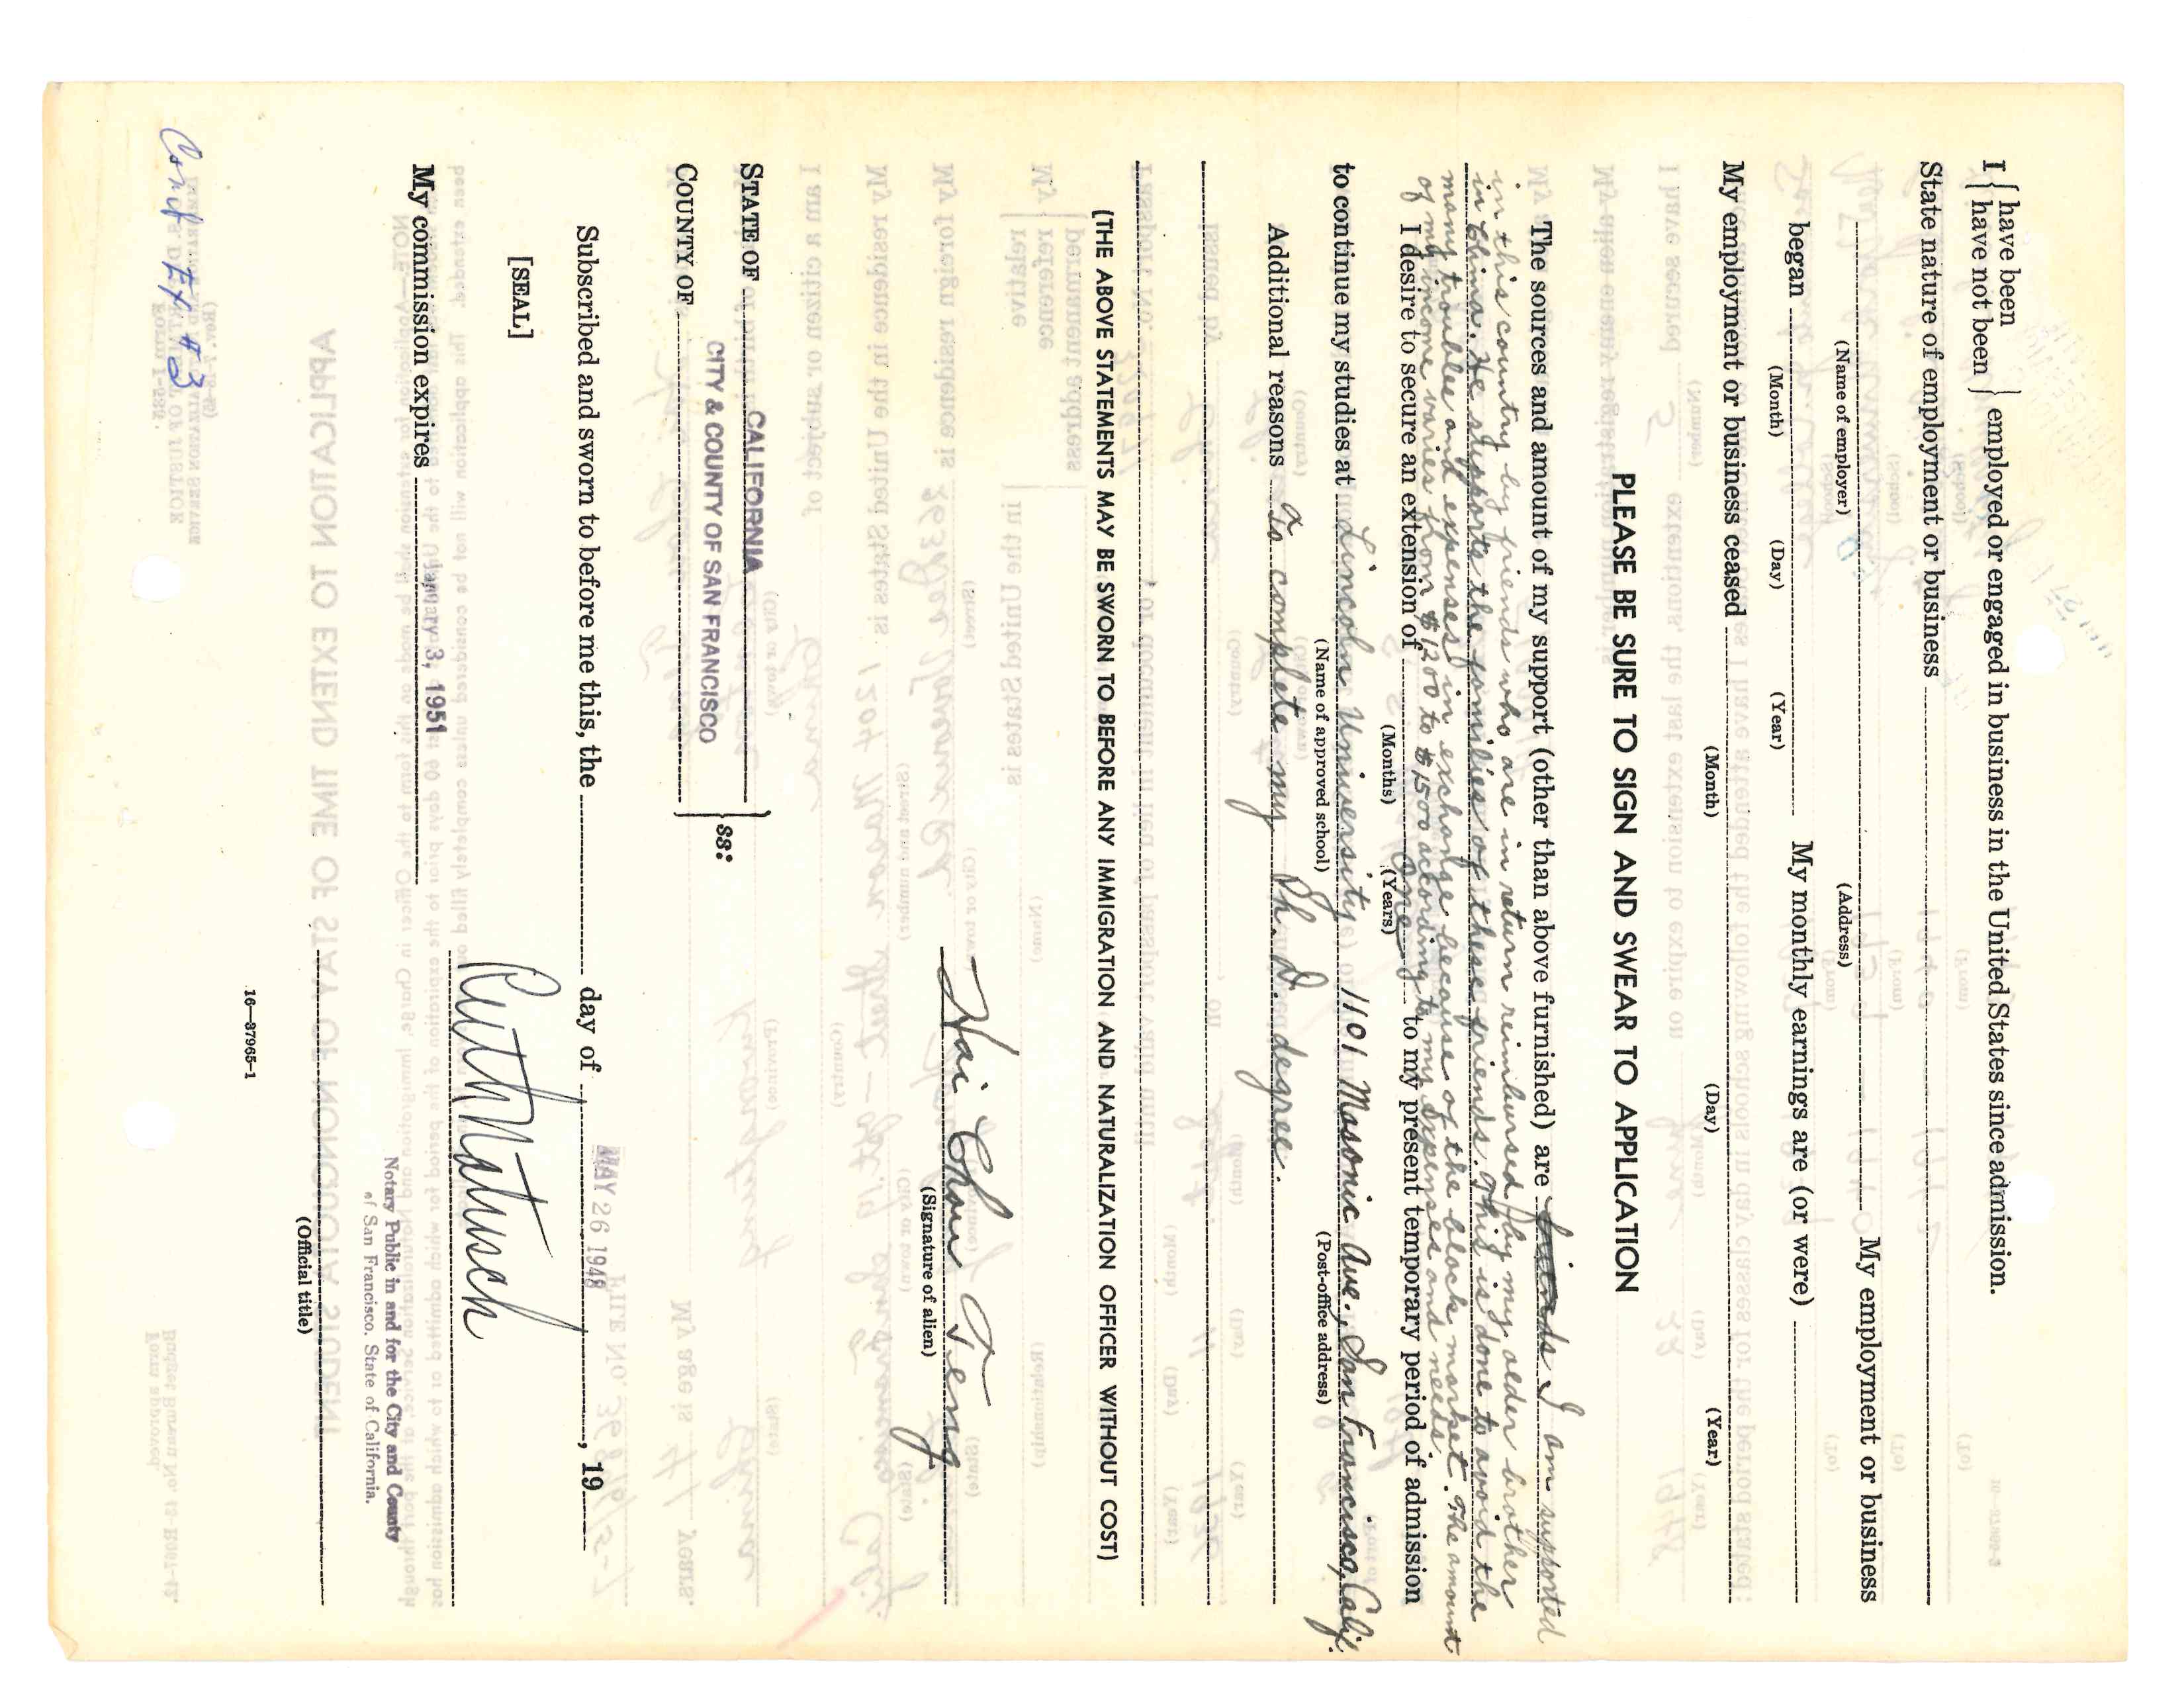 I { have been
have not been } employed or engaged in business in the United States since admission.
State nature of employment or business
My employment or business
(Name of employer) (Address)
began My monthly earnings are (or were)
(Month) (Day) (Year)
My employment or business ceased
(Month) (Day) (Year)
PLEASE BE SURE TO SIGN AND SWEAR TO APPLICATION
The sources and amount of my support (other than above furnished) are friends I am supported
in this country by friends who are in return reimbursed by my older brother
in China. He supports the families of these friends. This is done to avoid the
many trouble and expenses in exchange because of the black market. The amount
of my income varies from $1200 to $1500 according to my expenses and needs.
I desire to secure an extension of One to my present temporary period of admission
(Months) (Years)
to continue my studies at Lincoln University 1101 Masonic Ave., San Francisco, Calif.
(Name of approved school) (Post-office address)
Additional reasons To complete my Ph. D. degree.
(THE ABOVE STATEMENTS MAY BE SWORN TO BEFORE ANY IMMIGRATION AND NATURALIZATION OFFICER WITHOUT COST)
Hai Chou Teng
(Signature of alien)
STATE OF CALIFORNIA
CITY & COUNTY OF SAN FRANCISCO ss:
COUNTY OF
Subscribed and sworn to before me this, the day of MAY 26 1948, 19
[SEAL]
Ruth Natusch
My commission expires January 3, 1951
Notary Public in and for the City and County
of San Francisco. State of California.
(Official title)
16—37965-1
Ex #3